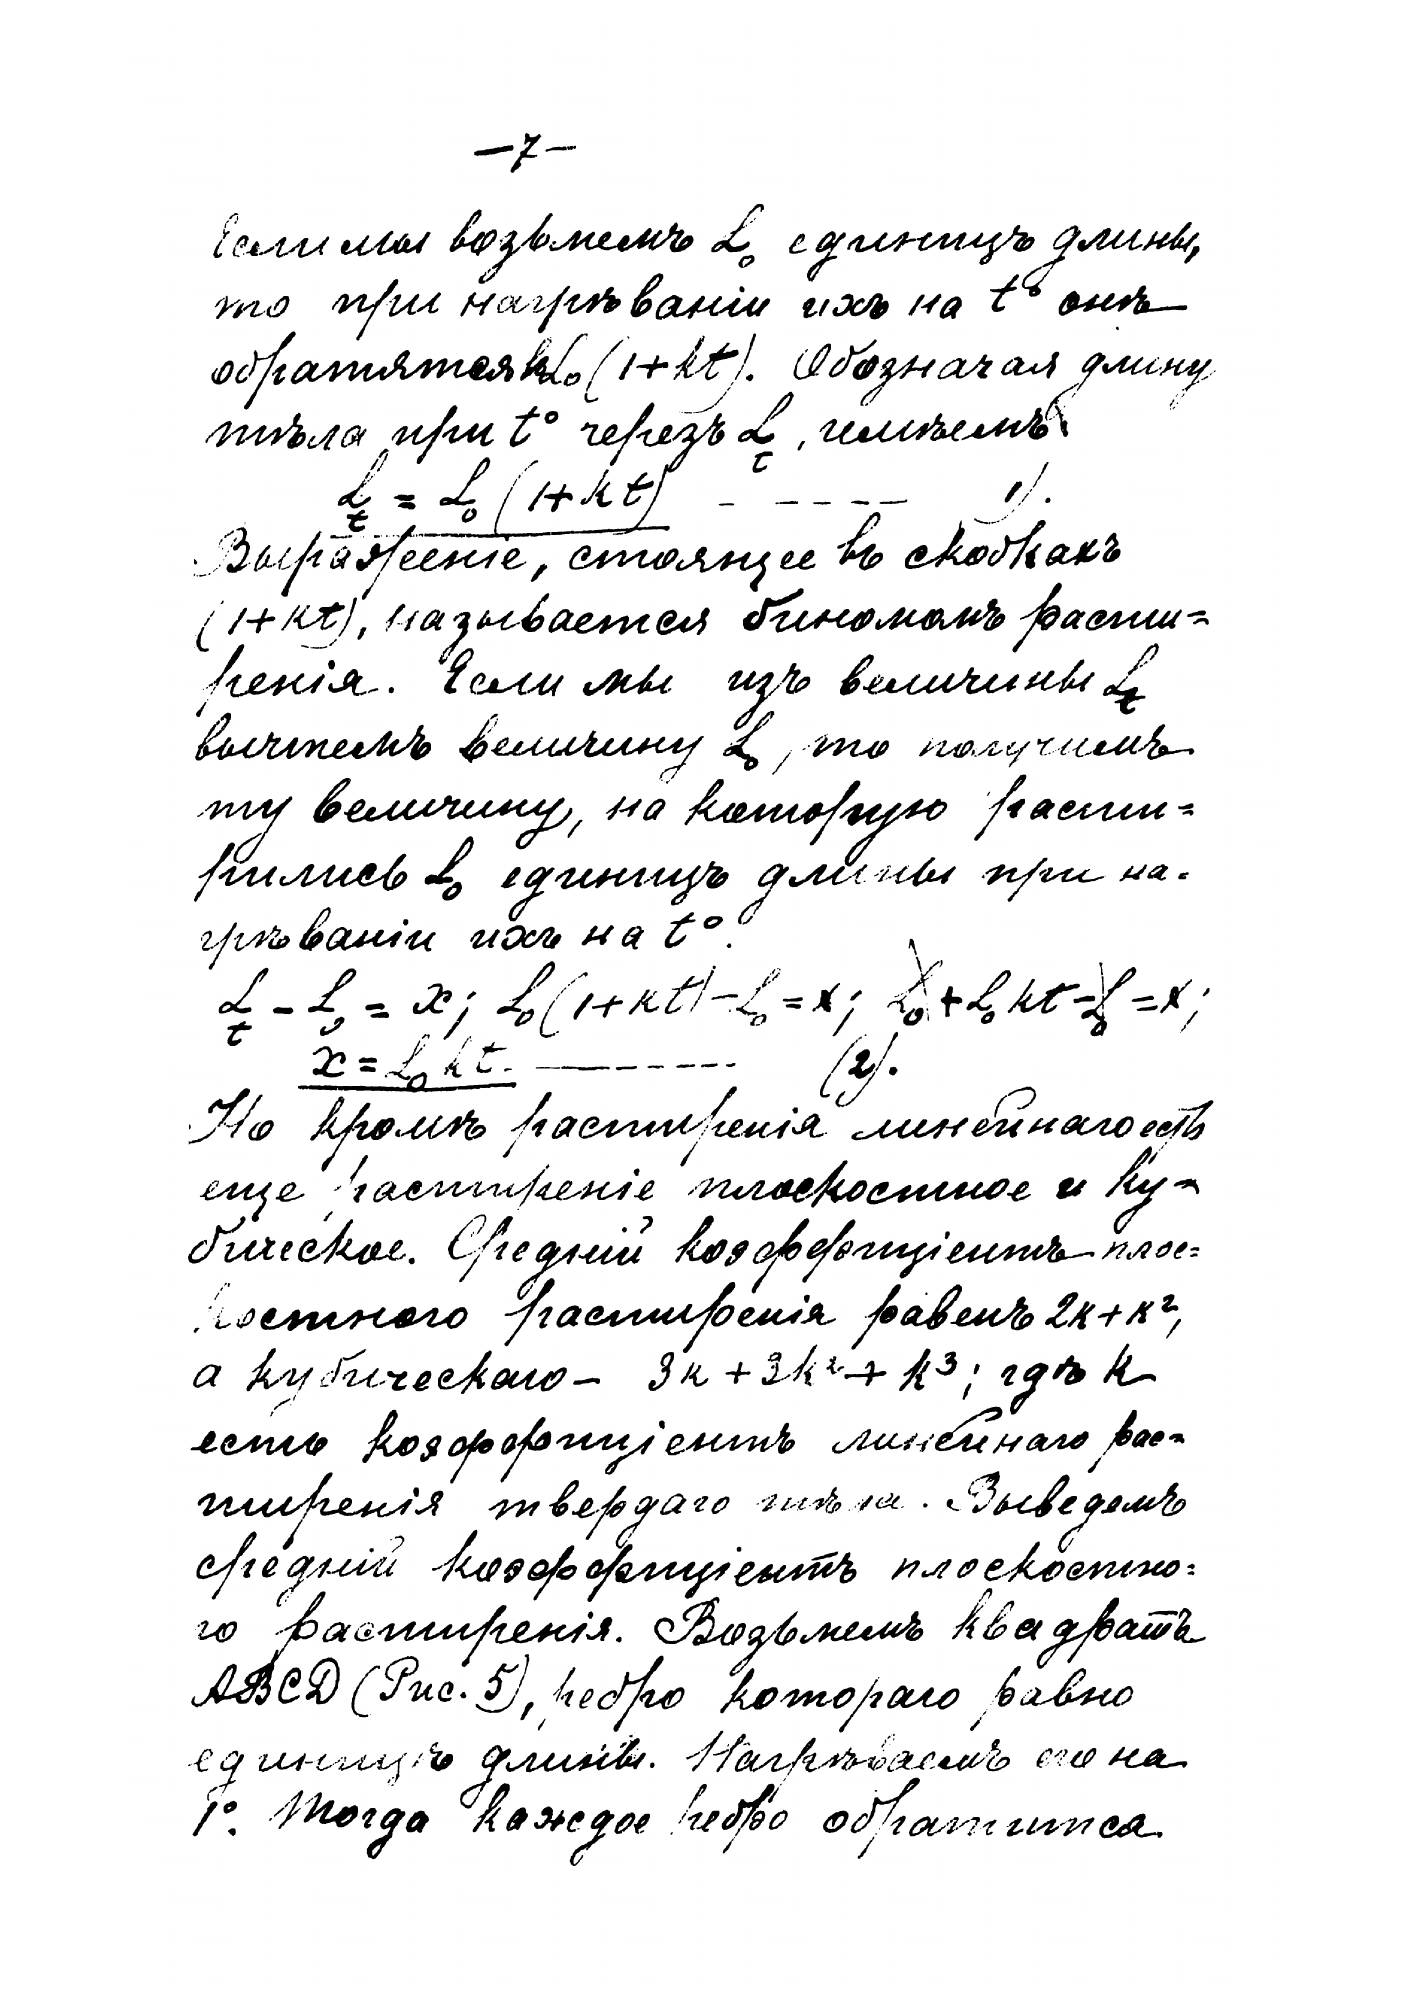 —7—
Если мы возьмемъ L₀ единицъ длины,
то при нагрѣваніи ихъ на t° онѣ
обратятся въ L₀(1+kt). Обозначая длину
тѣла при t° черезъ Lt, имѣемъ
Lt = L₀(1+kt) - - - - - 1).
Выраженіе, стоящее въ скобкахъ
(1+kt), называется биномомъ расши=
ренія. Если мы изъ величины Lt
вычтемъ величину L₀, то получимъ
ту величину, на которую расши=
рились L₀ единицъ длины при на=
грѣваніи ихъ на t°.
Lt - L₀ = x; L₀(1+kt) - L₀ = x; L₀ + L₀kt - L₀ = x;
x = L₀kt. - - - - - - (2).
Но кромѣ расширенія линейнаго есть
еще расширеніе плоскостное и ку=
бическое. Средній коэффиціентъ плос=
костного расширенія равенъ 2k+k²,
а кубическаго - 3k + 3k² + k³; гдѣ k
есть коэффиціентъ линейнаго рас=
ширенія твердаго тѣла. Выведемъ
средній коэффиціентъ плоскостно=
го расширенія. Возьмемъ квадратъ
ABCD (Рис. 5), ребро котораго равно
единицѣ длины. Нагрѣваемъ его на
1°. Тогда каждое ребро обратится